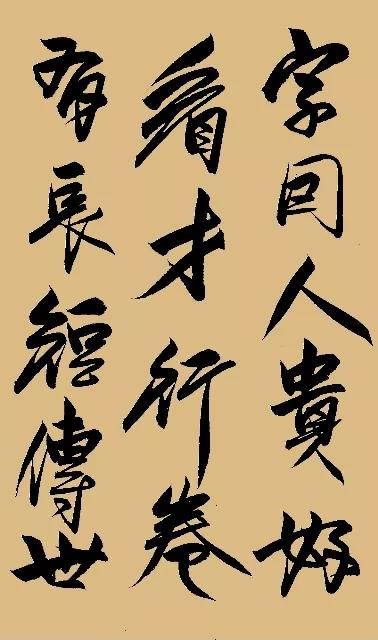 字因人貴好
看才行卷
有長短傳世